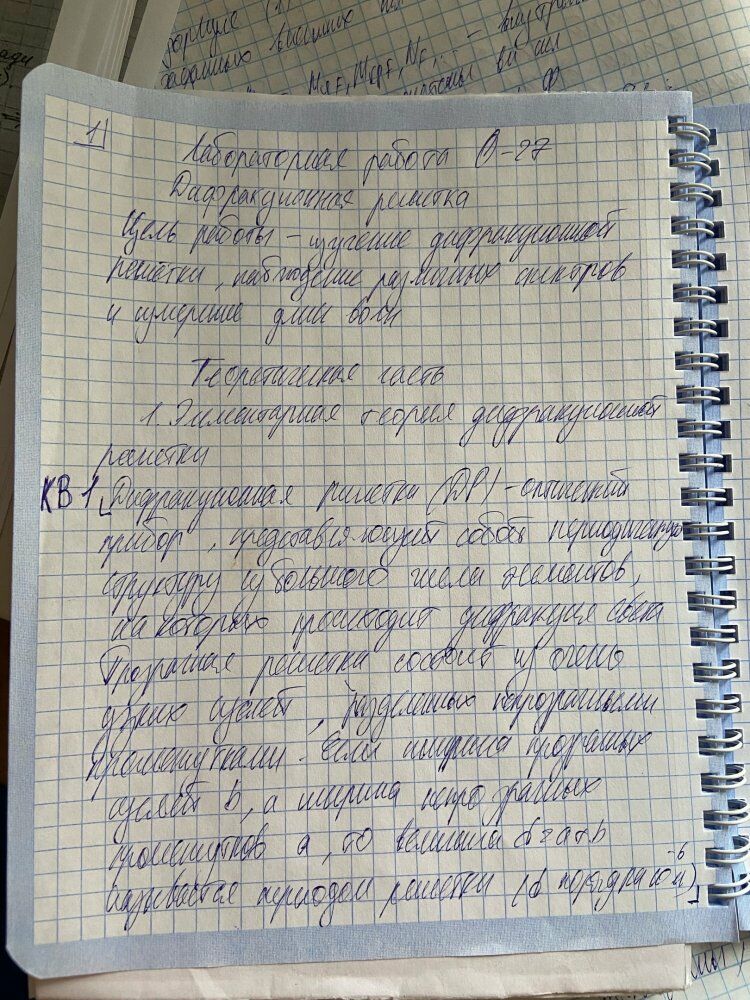 формуле (1)
заданных внешних
MzF, MкрF, NF, ... - внутрен
1)
Лабораторная работа О-27
Дифракционная решетка
Цель работы - изучение дифракционной
решётки, наблюдение различных спектров
и измерение длин волн
Теоретическая часть
1. Элементарная теория дифракционной
решетки
КВ 1 [Дифракционная решетка (ДР) - оптический
прибор, представляющий собой периодическую
структуру из большого числа элементов,
на которых происходит дифракция света
Прозрачная решетка состоит из очень
узких щелей, разделенных непрозрачными
промежутками. Если ширина прозрачных
щелей b, а ширина непрозрачных
промежутков a, то величина d=a+b
называется периодом решетки (d порядка 10⁻⁶ м)]